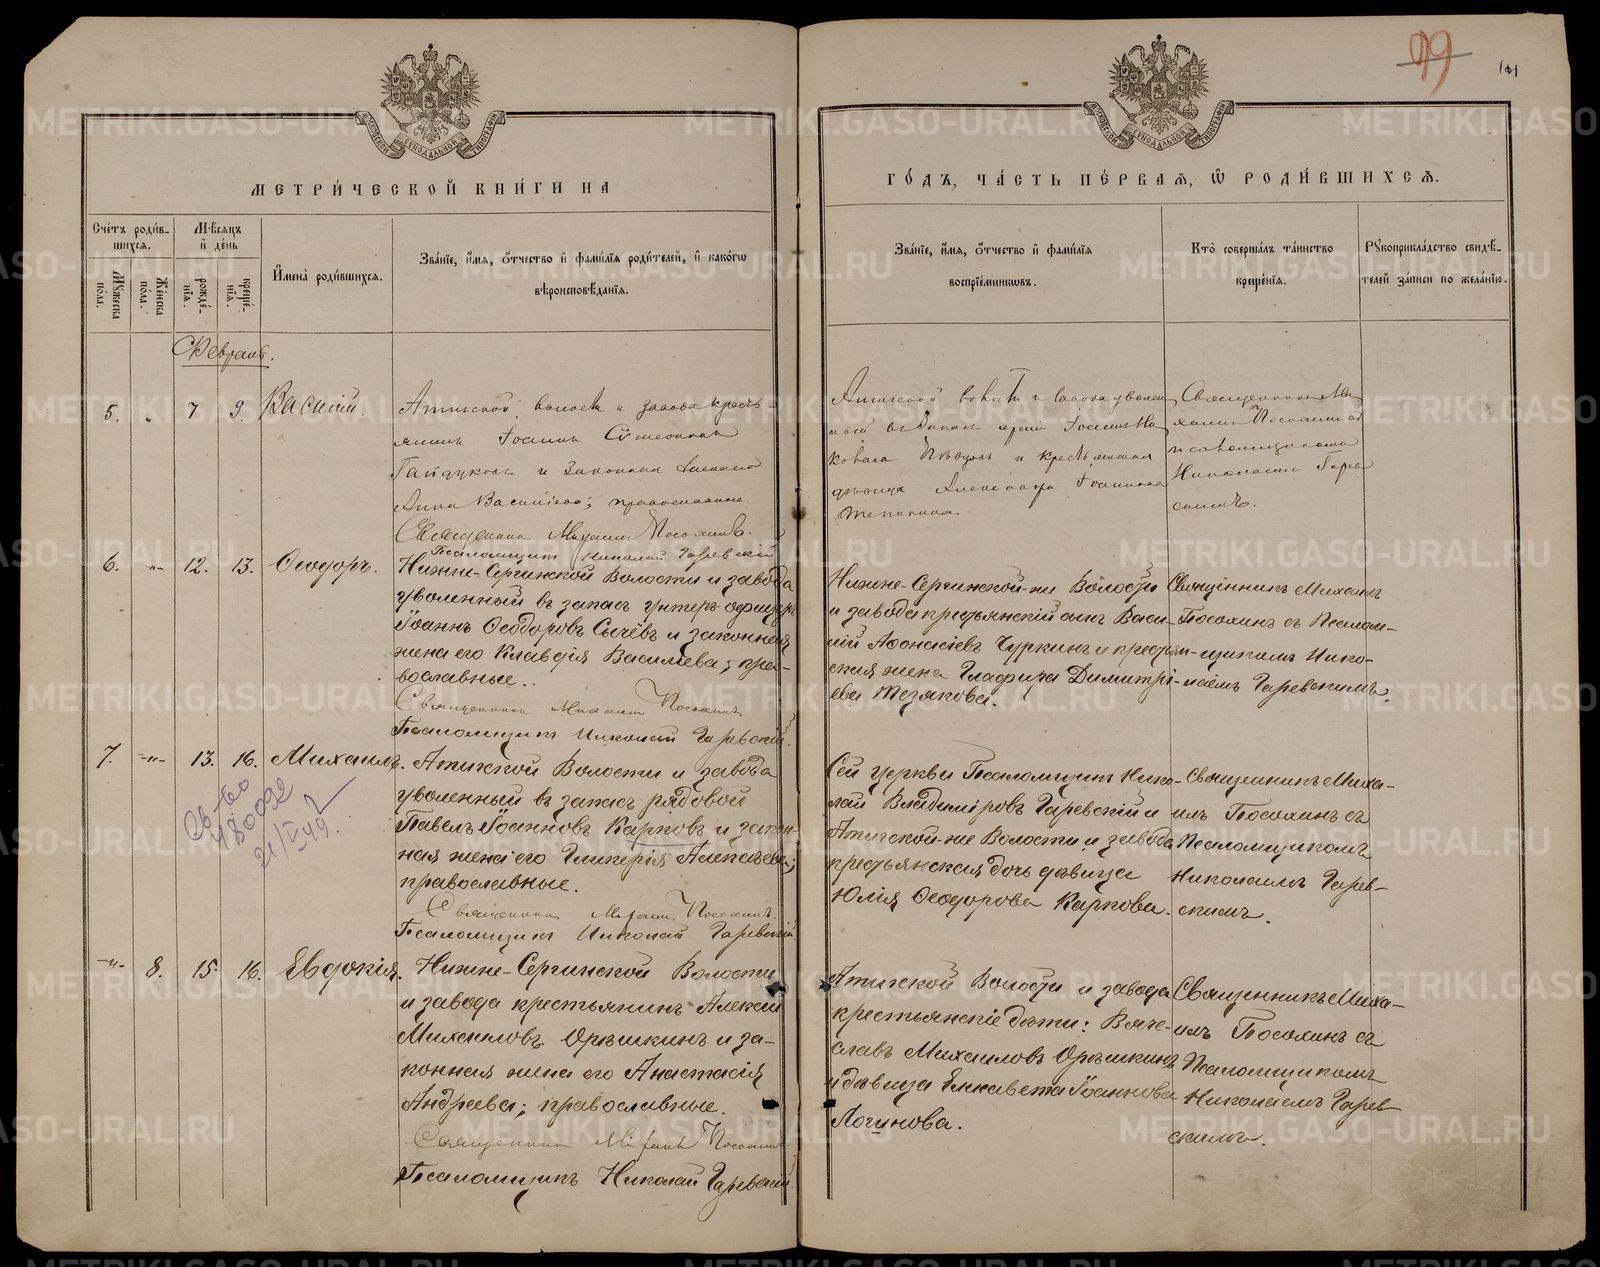 99
МЕТРИ́ЧЕСКОЙ КНИ́ГИ НА
ГО́ДЪ, ЧА́СТЬ ПЕ́РВАЯ, Ѡ РОДИ́ВШИХСЯ.
Сче́тъ роди́в-
шихся.
Му́жеска по́ла.
Же́нска по́ла.
Мѣ́сяцъ
и де́нь
рожде́-
нїя.
креще́-
нїя.
Имена̀ роди́вшихся.
Зва́нїе, и́мя, о́тчество и фами́лїя роди́телей, и како́гѡ
вѣроисповѣ́данїя.
Зва́нїе, и́мя, о́тчество и фами́лїя
воспрїе́мникѡвъ.
Кто̀ соверша́лъ та́инство
креще́нїя.
Рꙋкоприкла́дство свидѣ́-
телей за́писи по жела́нїю.
Февраль.
5. " 7 9. Василій.
Атигской волости и завода кресть-
янинъ Іоаннъ Сѵмеоновъ
Гайдуковъ и законная жена его
Анна Васильева; православные.
Священникъ Михаилъ Посохинъ.
Псаломщикъ Николай Гаревскій
Атигской волости и завода уволен
ный въ запасъ армии Іоаннъ
и крестьянская
дѣвица Александра Іоаннова
Священникъ Ми
хаилъ Посохинъ съ
псаломщикомъ
Николаемъ Гарев
скимъ.
6. -"- 12. 13. Ѳеодоръ.
Нижне-Сергинской Волости и завода
уволенный въ запасъ унтеръ-офицеръ
Іоаннъ Ѳеодоровъ Сычёвъ и законная
жена его Клавдія Васильева; пра-
вославные.
Священникъ Михаилъ Посохинъ
Псаломщикъ Николай Гаревскій.
Нижне-Сергинской-же Волости
и завода крестьянскій сынъ Васи-
лій Аѳонасіевъ Чуркинъ и крестьян-
ская жена Глафира Димитрі-
ева Тезякова.
Священникъ Михаилъ
Посохинъ съ Псалом-
щикомъ Нико-
лаемъ Гаревскимъ.
7. -"- 13. 16. Михаилъ.
Св-во
480092
21/V 49.
Атигской Волости и завода
уволенный въ запасъ рядовой
Павелъ Іоанновъ Карповъ и закон-
ная жена его Гликерія Алексѣева;
православные.
Священникъ Михаилъ Посохинъ.
Псаломщикъ Николай Гаревскій
Сей церкви Псаломщикъ Нико-
лай Владиміровъ Гаревскій и
Атигской-же Волости и завода
крестьянская дочь дѣвица
Юлія Ѳеодорова Карпова.
Священникъ Миха-
илъ Посохинъ съ
Псаломщикомъ
Николаемъ Гарев-
скимъ.
-"- 8. 15. 16. Евдокія.
Нижне-Сергинской Волости
и завода крестьянинъ Алексій
Михаиловъ Орѣшкинъ и за-
конная жена его Анастасія
Андреева; православные.
Священникъ Михаилъ Посохинъ
Псаломщикъ Николай Гаревскій
Атигской Волости и завода
крестьянскіе дѣти: Вяче-
славъ Михаиловъ Орѣшкинъ
и дѣвица Елисавета Іоаннова
Логинова.
Священникъ Миха-
илъ Посохинъ съ
Псаломщикомъ
Николаемъ Гарев
скимъ.
METRIKI.GASO-URAL.RU